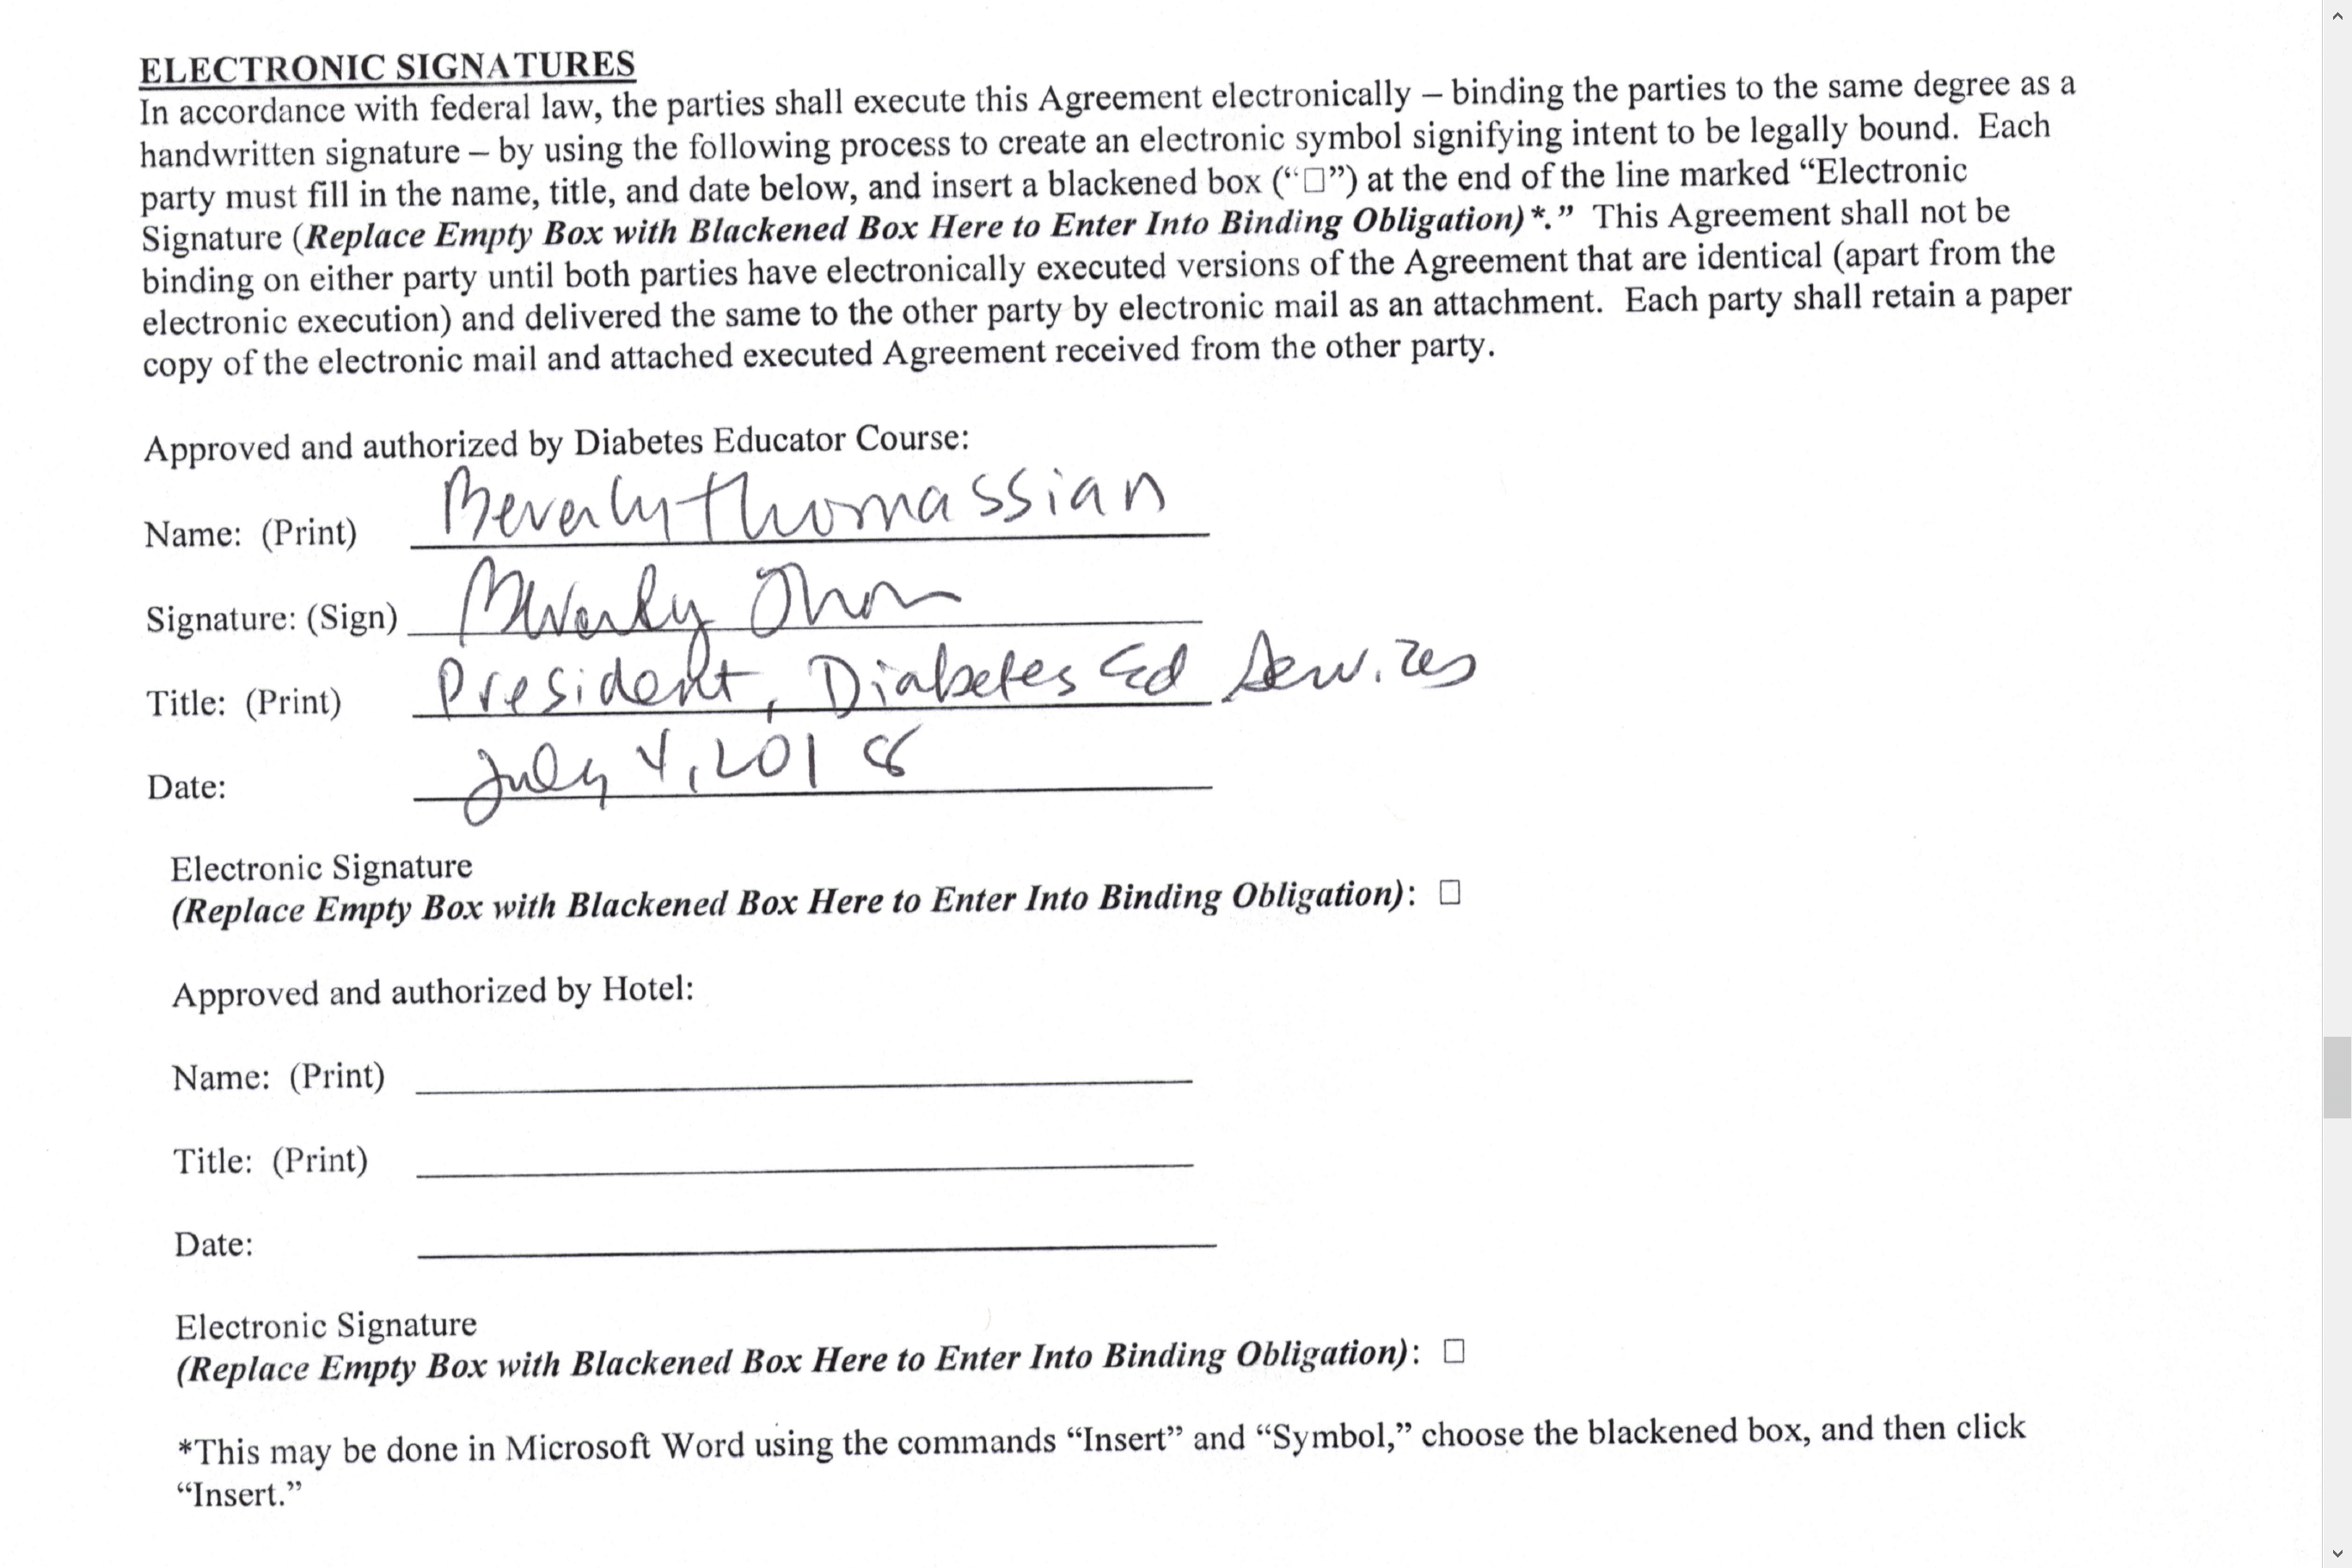 ELECTRONIC SIGNATURES
In accordance with federal law, the parties shall execute this Agreement electronically – binding the parties to the same degree as a
handwritten signature – by using the following process to create an electronic symbol signifying intent to be legally bound. Each
party must fill in the name, title, and date below, and insert a blackened box (“□”) at the end of the line marked “Electronic
Signature (Replace Empty Box with Blackened Box Here to Enter Into Binding Obligation)*.” This Agreement shall not be
binding on either party until both parties have electronically executed versions of the Agreement that are identical (apart from the
electronic execution) and delivered the same to the other party by electronic mail as an attachment. Each party shall retain a paper
copy of the electronic mail and attached executed Agreement received from the other party.
Approved and authorized by Diabetes Educator Course:
Name: (Print) Beverly Thomassian
Signature: (Sign) Beverly Thom
Title: (Print) President, Diabetes Ed Services
Date: July 4, 2018
Electronic Signature
(Replace Empty Box with Blackened Box Here to Enter Into Binding Obligation): □
Approved and authorized by Hotel:
Name: (Print)
Title: (Print)
Date:
Electronic Signature
(Replace Empty Box with Blackened Box Here to Enter Into Binding Obligation): □
*This may be done in Microsoft Word using the commands “Insert” and “Symbol,” choose the blackened box, and then click
“Insert.”